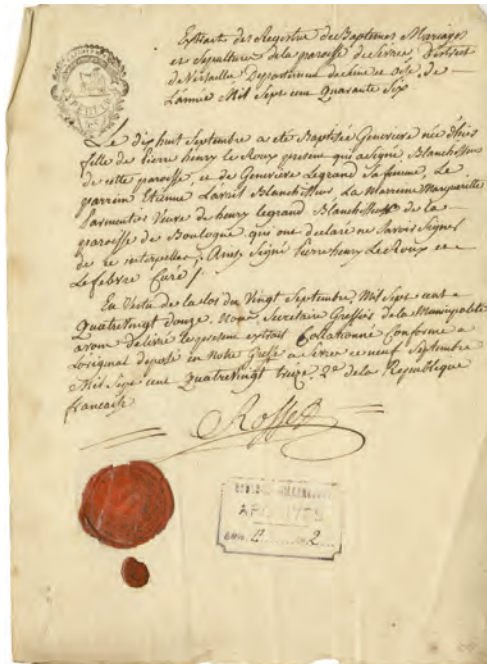 Extrait des Registre de Baptemes Mariage
et Sepulture de la paroisse de Sevres District
de Versaille Departement de Seine et Oise, de
L'année Mil Sept cent Quarante Six
Le dix huit Septembre a eté Baptisée Genevieve née d'hier
fille de Pierre henry le Roux present qui a Signé, Blanchisseur
de cette paroisse, et de Genevieve Legrand Sa femme, Le
parrein Etienne Blanchisseur La Marreine Marguerite
Parmentier Veuve de henry legrand Blanchisseur de la
paroisse de Boulogne, qui ont declaré ne Savoir Signer
de ce interpellés, Ainsi Signé Pierre henry Le Roux et
Lefebvre Curé /
En Vertu de la loi du Vingt Septembre, Mil Sept cent
Quatrevingt douze, Nous Secretaire Greffier de la Municipalité
avons delivré le present extrait Collationné Conforme a
L'original deposé en Notre Greffe a Sevres ce neuf Septembre
Mil Sept cent Quatrevingt treize, 2e de la Republique
francaise
Rosset